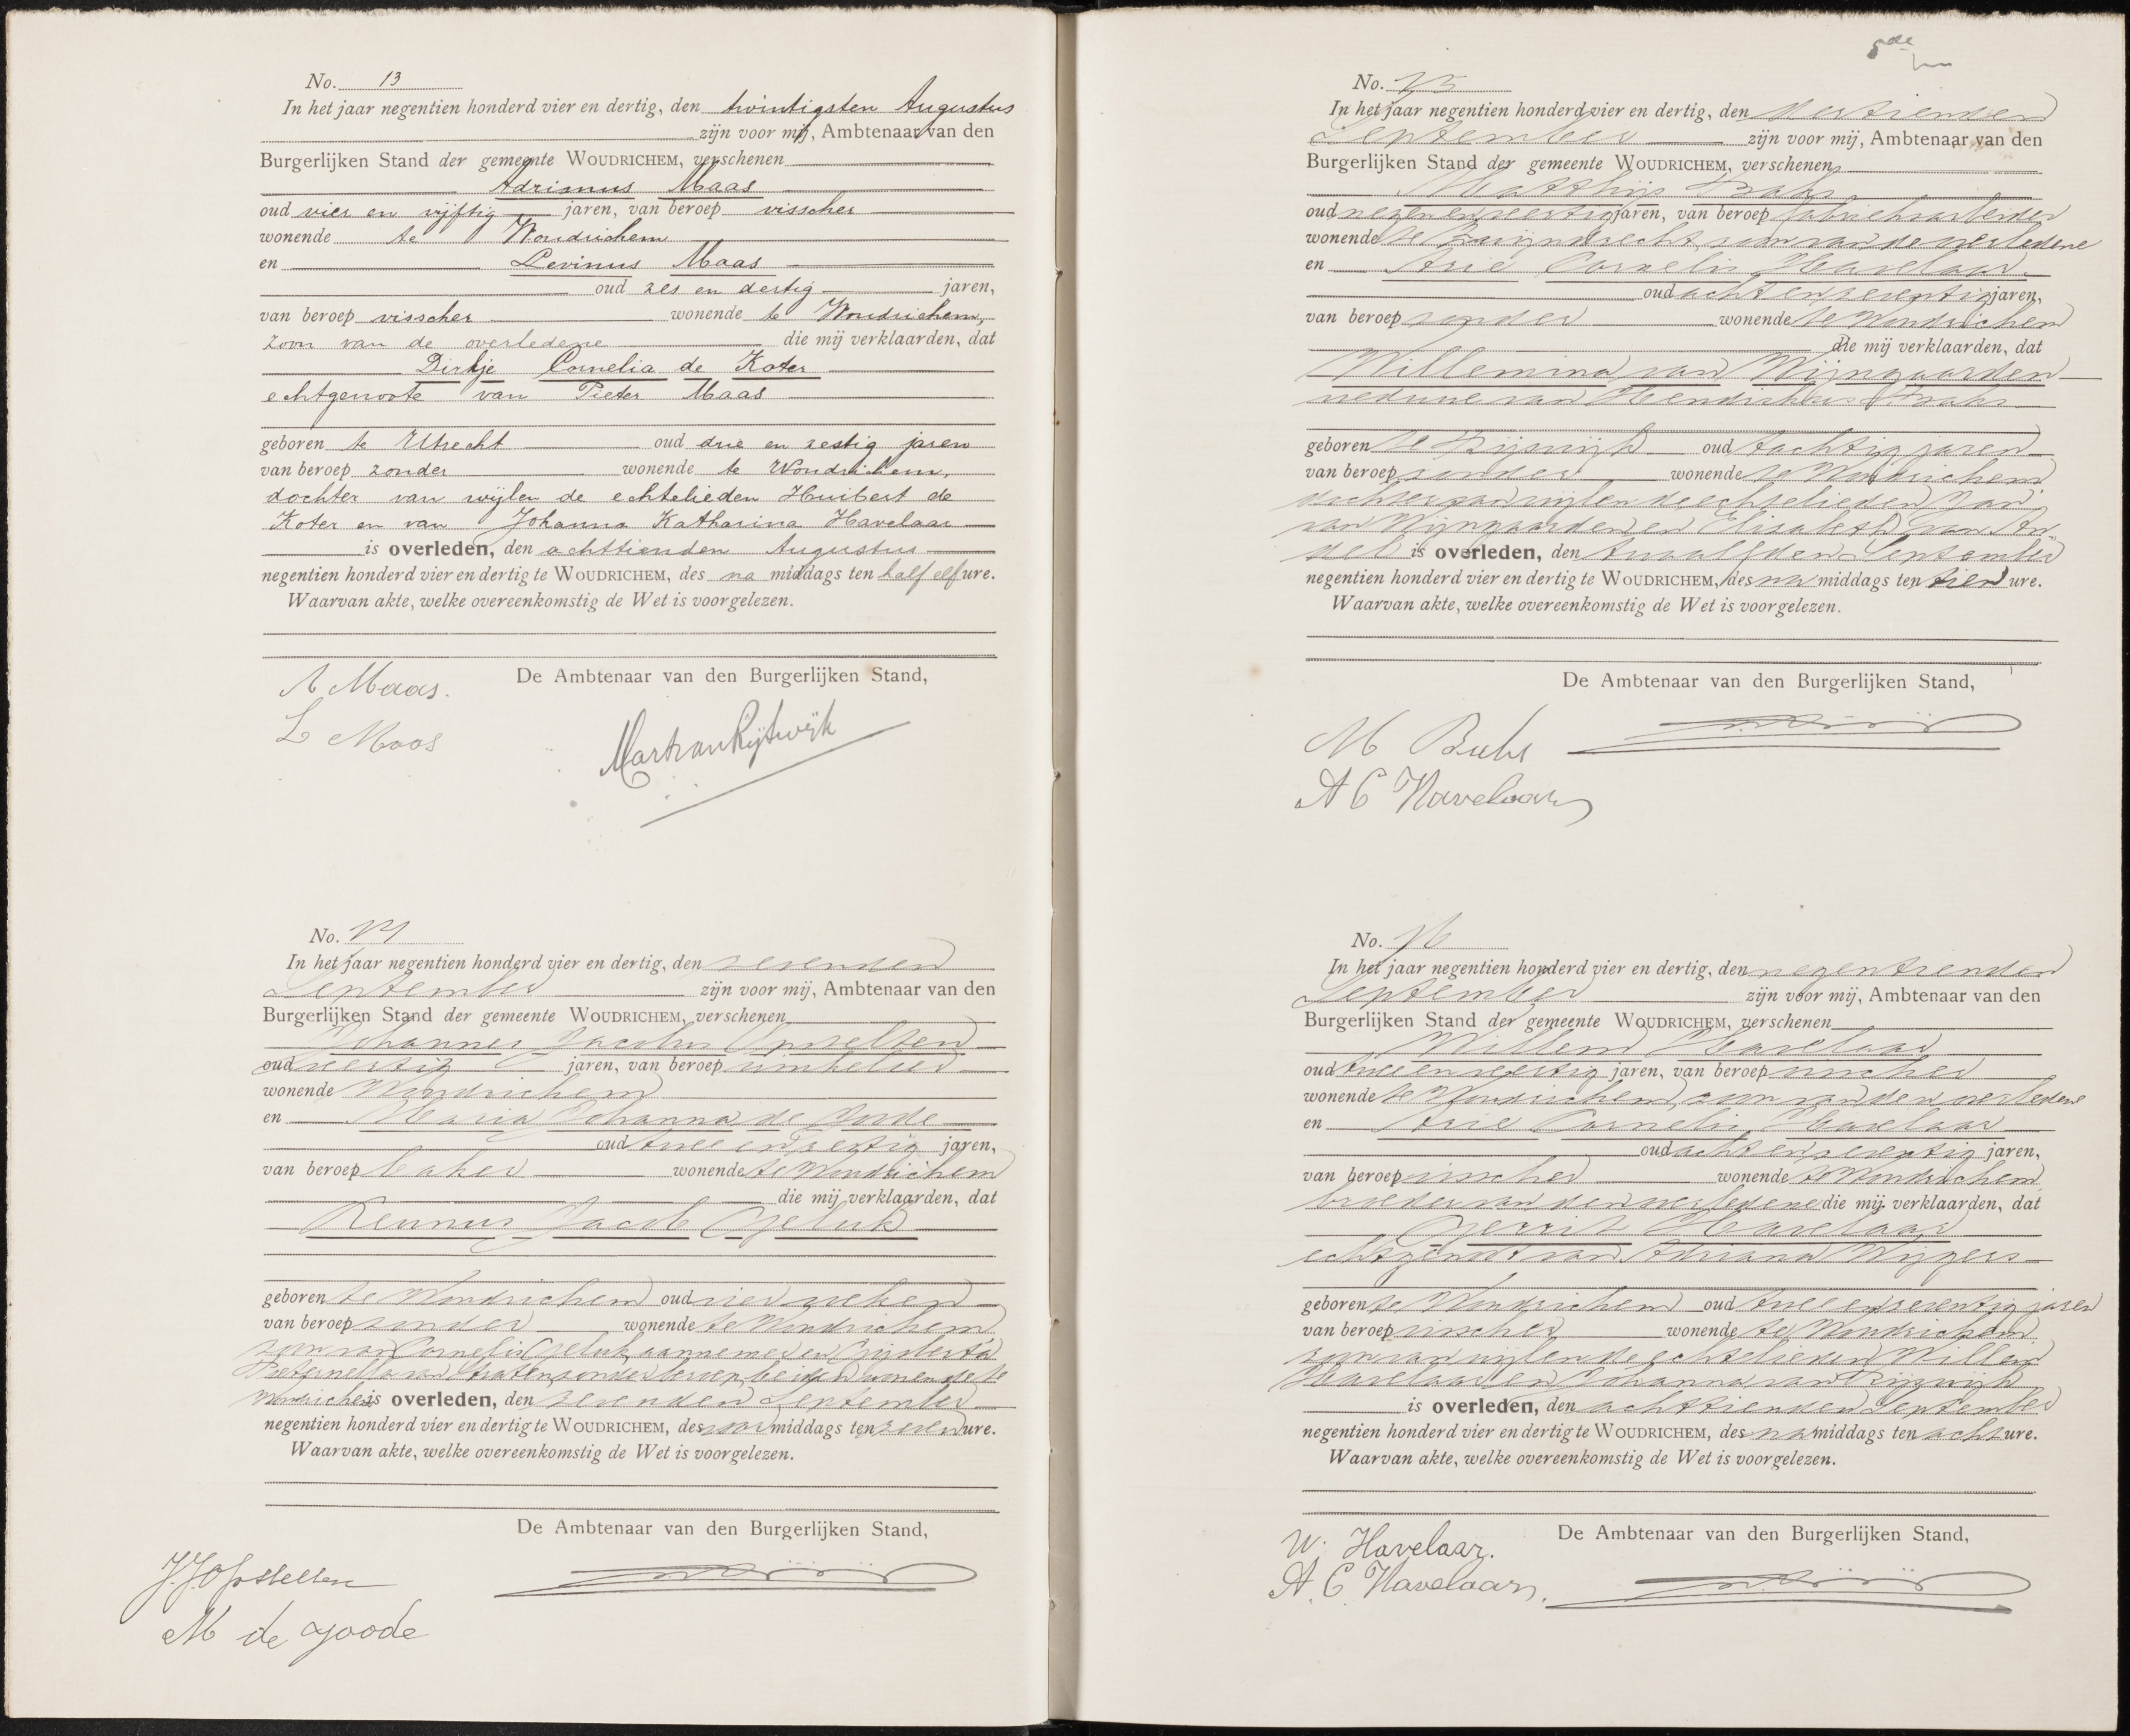 No. 13
In het jaar negentien honderd vier en dertig, den twintigsten Augustus
zijn voor mij, Ambtenaar van den
Burgerlijken Stand der gemeente WOUDRICHEM, verschenen
Adrianus Maas
oud vier en vijftig jaren, van beroep visscher
wonende te Woudrichem
en Levinus Maas
oud zes en dertig jaren,
van beroep visscher wonende te Woudrichem,
zoon van de overledene die mij verklaarden, dat
Dirkje Cornelia de Koter
echtgenoote van Pieter Maas
geboren te Utrecht oud drie en zestig jaren
van beroep zonder wonende te Woudrichem,
dochter van wijlen de echtelieden Huibert de
Koter en van Johanna Katharina Havelaar
is overleden, den achttienden Augustus
negentien honderd vier en dertig te WOUDRICHEM, des na middags ten half elf ure.
Waarvan akte, welke overeenkomstig de Wet is voorgelezen.
De Ambtenaar van den Burgerlijken Stand,
A Maas.
L Maas
No. 14
In het jaar negentien honderd vier en dertig, den zevenden
September zijn voor mij, Ambtenaar van den
Burgerlijken Stand der gemeente WOUDRICHEM, verschenen
Johannes Jacobus Opstelten
oud veertig jaren, van beroep winkelier
wonende Woudrichem
en Maria Johanna de Joode
oud twee en zestig jaren,
van beroep baker wonende te Woudrichem
die mij verklaarden, dat
Rennus Jacob Geluk
geboren te Woudrichem oud vier weken
van beroep zonder wonende te Woudrichem
zoon van Cornelis Geluk, aannemer en Gijsberta
Pieternella van Straten, zonder beroep, beiden wonende te
Woudrichem is overleden, den zevenden September
negentien honderd vier en dertig te WOUDRICHEM, des voormiddags ten zeven ure.
Waarvan akte, welke overeenkomstig de Wet is voorgelezen.
De Ambtenaar van den Burgerlijken Stand,
J.J. Opstelten
M de Joode
No. 15
In het jaar negentien honderd vier en dertig, den dertienden
September zijn voor mij, Ambtenaar van den
Burgerlijken Stand der gemeente WOUDRICHEM, verschenen
Matthijs
oud negen en veertig jaren, van beroep fabrieksarbeider
wonende te Zwijndrecht, zoon van de overledene
en Arie Cornelis Havelaar
oud acht en zeventig jaren,
van beroep zonder wonende te Woudrichem
die mij verklaarden, dat
Willemina van Wijngaarden
weduwe van Hendrikus
geboren te Rijswijk oud tachtig jaren
van beroep zonder wonende te Woudrichem
dochter van wijlen de echtelieden Jan
van Wijngaarden en Elisabeth van An
del is overleden, den twaalfden September
negentien honderd vier en dertig te WOUDRICHEM, des na middags ten tien ure.
Waarvan akte, welke overeenkomstig de Wet is voorgelezen.
De Ambtenaar van den Burgerlijken Stand,
M
A C Havelaar
No. 16
In het jaar negentien honderd vier en dertig, den negentienden
September zijn voor mij, Ambtenaar van den
Burgerlijken Stand der gemeente WOUDRICHEM, verschenen
Willem Havelaar
oud twee en veertig jaren, van beroep visscher
wonende te Woudrichem, zoon van den overledene
en Arie Cornelis Havelaar
oud acht en zeventig jaren,
van beroep visscher wonende te Woudrichem
broeder van den overledene die mij verklaarden, dat
Gerrit Havelaar
echtgenoot van Adriana Wijgers
geboren te Woudrichem oud twee en zeventig jaren
van beroep visscher wonende te Woudrichem
zoon van wijlen de echtelieden Willem
Havelaar en Johanna van Rijswijk
is overleden, den achttienden September
negentien honderd vier en dertig te WOUDRICHEM, des na middags ten acht ure.
Waarvan akte, welke overeenkomstig de Wet is voorgelezen.
De Ambtenaar van den Burgerlijken Stand,
W. Havelaar.
A. C. Havelaar.